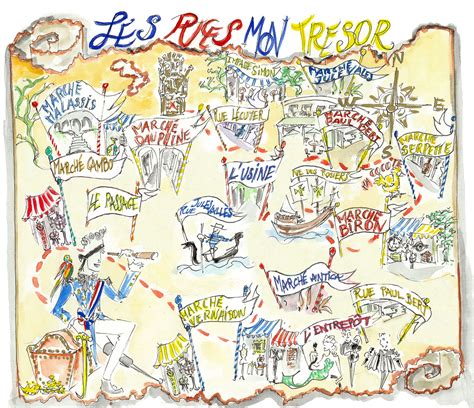 LES PUCES MON TRESOR
IMPASSE SIMON
MARCHE JULES VALLES
N
MARCHE
MALASSIS
RUE LECUYER
MARCHE
DAUPHINE
MARCHE
PAUL BERT
E
MARCHE
SERPETTE
S
MARCHE CAMBO
L'USINE
RUE DES ROSIERS
LA COCOTTE
LE PASSAGE
RUE JULES VALLES
MARCHE
BIRON
MARCHE ANTICA
MARCHE
VERNAISON
RUE PAUL BERT
L'ENTREPÔT